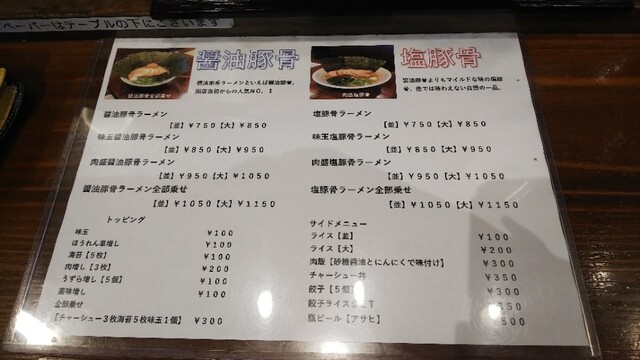 ペーパーはテーブルの下にございます
醤油豚骨
横浜家系ラーメンといえば醤油豚骨。
開店当初からの人気NO.1
醤油豚骨全部乗せ
醤油豚骨ラーメン
【並】￥750【大】￥850
味玉醤油豚骨ラーメン
【並】￥850【大】￥950
肉盛醤油豚骨ラーメン
【並】￥950【大】￥1050
醤油豚骨ラーメン全部乗せ
【並】￥1050【大】￥1150
トッピング
味玉 ￥100
ほうれん草増し ￥100
海苔【5枚】 ￥100
肉増し【3枚】 ￥200
うずら増し【5個】 ￥100
薬味増し ￥100
全部乗せ
【チャーシュー3枚海苔5枚味玉1個】 ￥300
塩豚骨
醤油豚骨よりもマイルドな味の塩豚
骨。他では味わえない自慢の一品。
肉盛塩豚骨
塩豚骨ラーメン
【並】￥750【大】￥850
味玉塩豚骨ラーメン
【並】￥850【大】￥950
肉盛塩豚骨ラーメン
【並】￥950【大】￥1050
塩豚骨ラーメン全部乗せ
【並】￥1050【大】￥1150
サイドメニュー
ライス【並】 ￥100
ライス【大】 ￥200
肉飯【砂糖醤油とにんにくで味付け】 ￥300
チャーシュー丼 ￥350
餃子【5個】 ￥300
餃子ライスSET
瓶ビール【アサヒ】